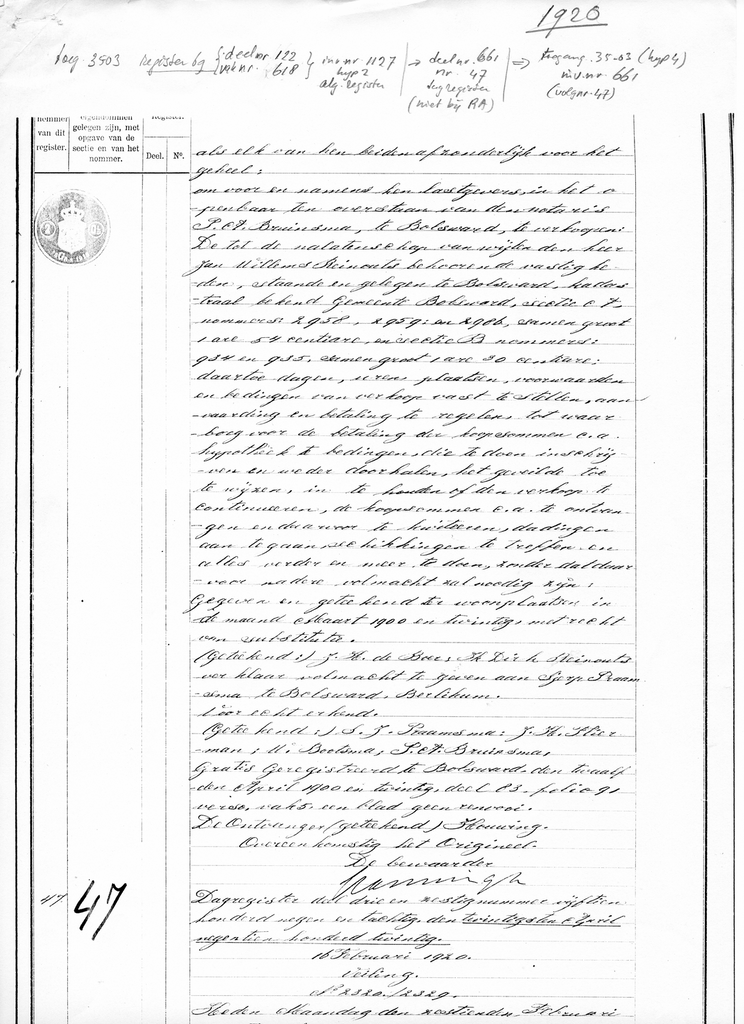 1920
toeg. 3503 register 69 { deel nr 122 } inv.nr. 1127 → deel nr. 661 ⇒ toegang. 35-03 (hyp 4)
vak nr. 618 hyp 2 nr. 47 inv.nr. 661
alg. register dagregister (volgnr. 47)
(niet bij RA)
nummer
van dit
register.
eigendommen
gelegen zijn, met
opgave van de
sectie en van het
nommer.
Register.
Deel. No.
als elk van hen beiden afzonderlijk voor het
geheel;
om voor en namens hen lastgevers, in het o
-penbaar ten overstaan van den notaris
P.A. Bruinsma, te Bolsward, te verkoopen:
De tot de nalatenschap van wijlen den heer
Jan Willems Steinouts behoorende vastighe-
den, staande en gelegen te Bolsward, kadas-
traal bekend Gemeente Bolsward, sectie A,
nommers: 2958, 2959 en 2986, samen groot
1 are 54 centiare, en sectie B nommers:
934 en 935, samen groot 1 are 30 centiare;
daartoe dagen, uren, plaatsen, voorwaarden
en bedingen van verkoop vast te stellen, aan-
vaarding en betaling te regelen, tot waar-
-borg voor de betaling der koopsommen c.a.
hypotheek te bedingen, die te doen inschrij-
-ven en weder doorhalen, het geveilde toe
te wijzen, in te houden of den verkoop te
continueeren, de koopsommen c.a. te ontvan-
-gen en daarvoor te kwiteeren, dadingen
aan te gaan, schikkingen te treffen en
alles verder en meer te doen, zonder dat daar-
-voor nadere volmacht zal noodig zijn;
Gegeven en geteekend ter woonplaatsen in
de maand Maart 1900 en twintig, met recht
van substitutie.
(Geteekend:) J. H. de Boer; Th Dirk Steinouts
verklaar volmacht te geven aan Sjerp Praam-
sma te Bolsward, Berlikum.
Voor echt erkend.
(Geteekend:) S. J. Praamsma; J. H. Stier-
man; W. Bootsma; P.A. Bruinsma,
Gratis Geregistreerd te Bolsward, den twaalf-
den April 1900 en twintig, deel 83, folio 91
verso, vak 5. een blad geen renvooi.
De Ontvanger (geteekend) Houwing.
Overeenkomstig het Origineel.
De bewaarder
47 47
Dagregister deel drie en zestig nummer vijftien
honderd negen en tachtig, den twintigsten April
negentien honderd twintig.
16 Februari 1920.
Veiling.
No 2320/2329.
Heden Maandag den zestienden Februari